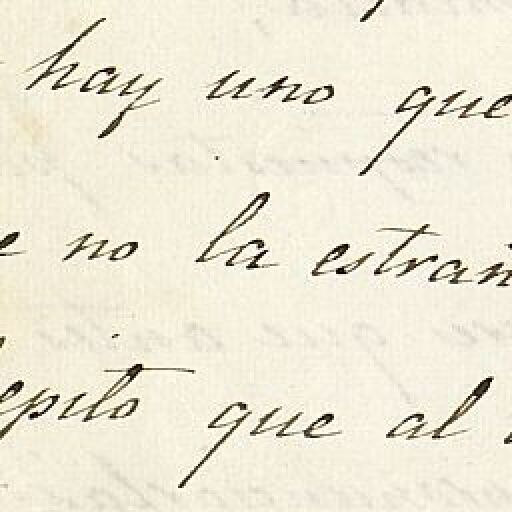 hay uno que
e no la estrañ
epito que al